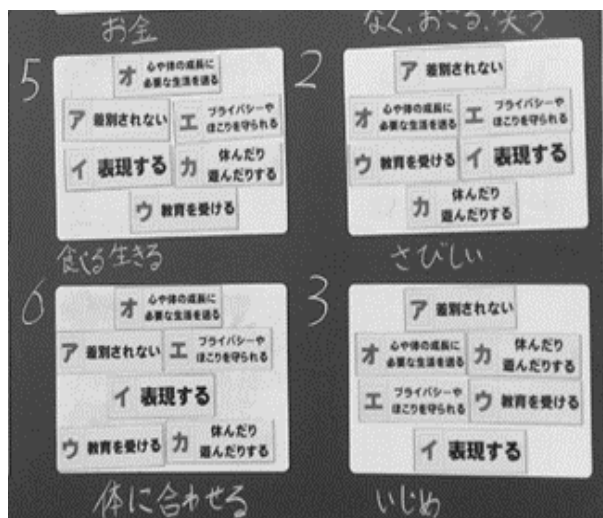 お金
なく、おこる、笑う
5
オ 心や体の成長に
必要な生活を送る
ア 差別されない
エ プライバシーや
ほこりを守られる
イ 表現する
カ 休んだり
遊んだりする
ウ 教育を受ける
2
ア 差別されない
オ 心や体の成長に
必要な生活を送る
エ プライバシーや
ほこりを守られる
ウ 教育を受ける
イ 表現する
カ 休んだり
遊んだりする
食べる生きる
さびしい
6
オ 心や体の成長に
必要な生活を送る
ア 差別されない
エ プライバシーや
ほこりを守られる
イ 表現する
ウ 教育を受ける
カ 休んだり
遊んだりする
3
ア 差別されない
オ 心や体の成長に
必要な生活を送る
カ 休んだり
遊んだりする
エ プライバシーや
ほこりを守られる
ウ 教育を受ける
イ 表現する
体に合わせる
いじめ